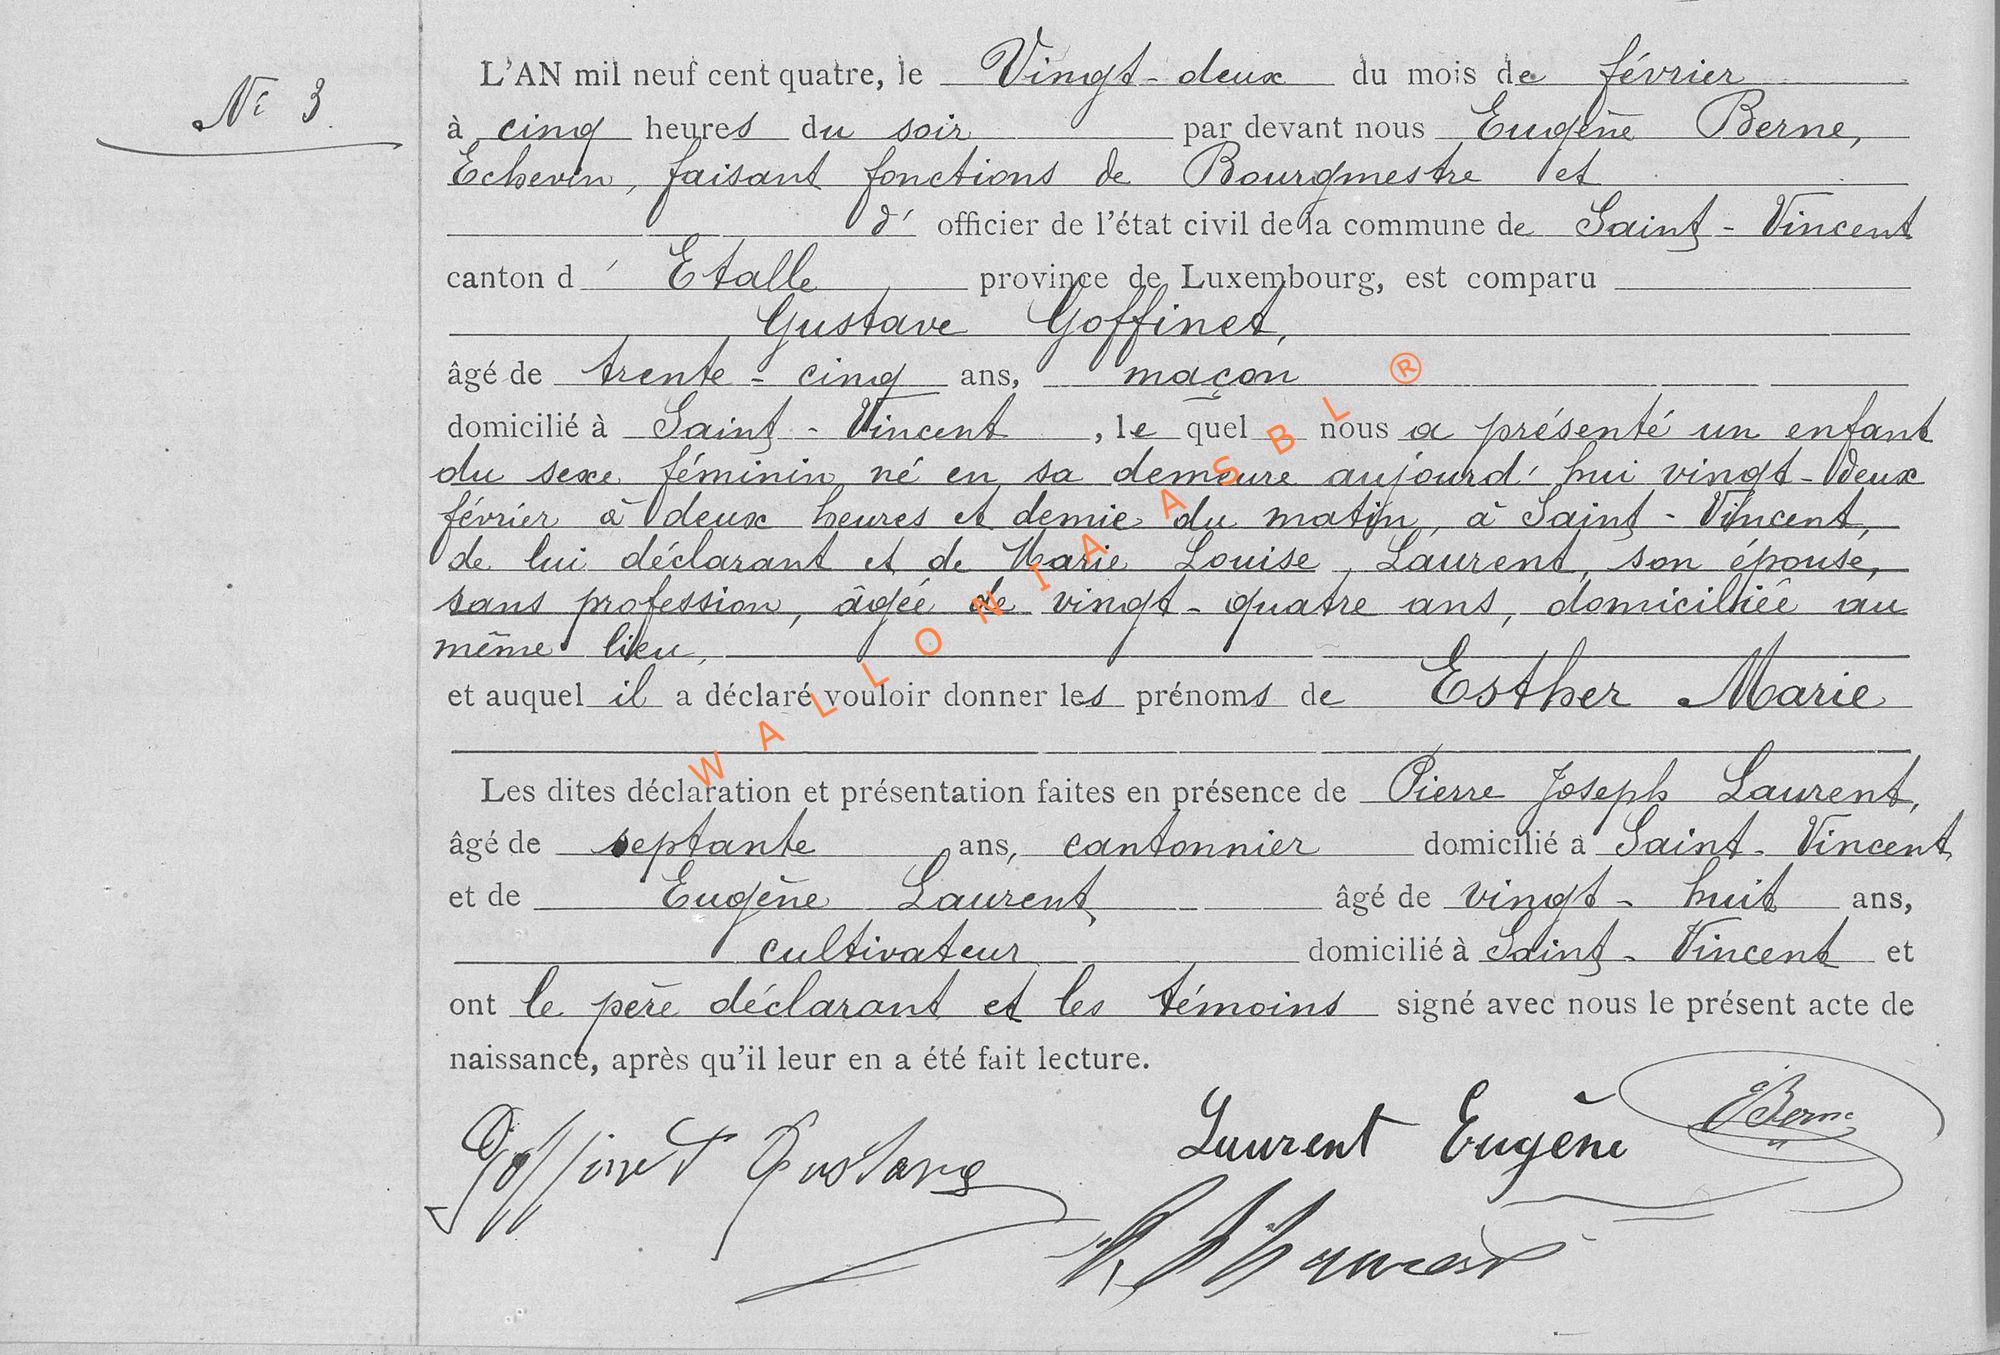 N° 3
L'AN mil neuf cent quatre, le Vingt-deux du mois de février
à cinq heures du soir par devant nous Eugène Berne,
Echevin, faisant fonctions de Bourgmestre et
d' officier de l'état civil de la commune de Saint-Vincent
canton d' Etalle province de Luxembourg, est comparu
Gustave Goffinet,
âgé de trente-cinq ans, maçon
domicilié à Saint-Vincent, le quel nous a présenté un enfant
du sexe féminin né en sa demeure aujourd'hui vingt-deux
février à deux heures et demie du matin, à Saint-Vincent,
de lui déclarant et de Marie Louise Laurent, son épouse,
sans profession, âgée de vingt-quatre ans, domiciliée au
même lieu,
et auquel il a déclaré vouloir donner les prénoms de Esther Marie
Les dites déclaration et présentation faites en présence de Pierre Joseph Laurent,
âgé de septante ans, cantonnier domicilié à Saint-Vincent
et de Eugène Laurent, âgé de vingt-huit ans,
cultivateur domicilié à Saint-Vincent et
ont le père déclarant et les témoins signé avec nous le présent acte de
naissance, après qu'il leur en a été fait lecture.
Goffinet Gustave
Laurent Eugène
E Berne
Laurent
WALLONIA ASBL ®